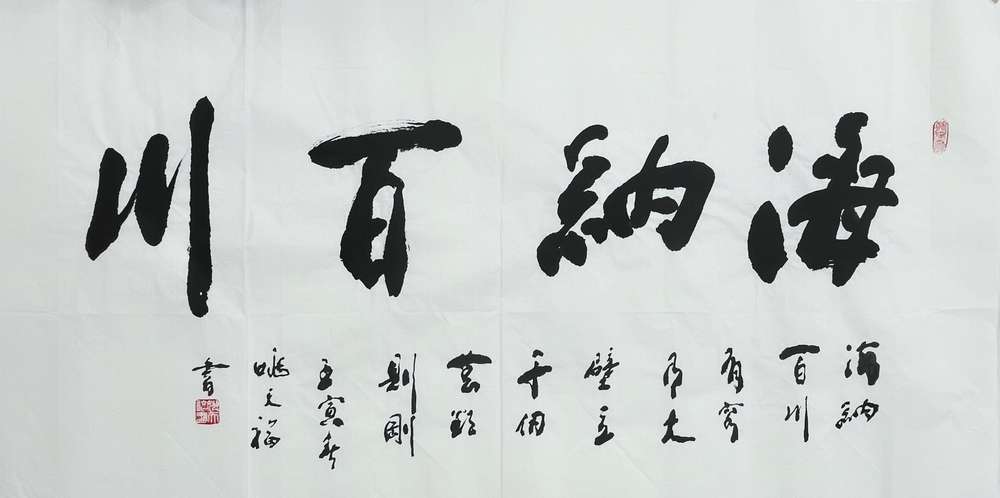 海納百川
海納
百川
有容
乃大
壁立
千仞
無欲
則剛
壬寅春
福
書